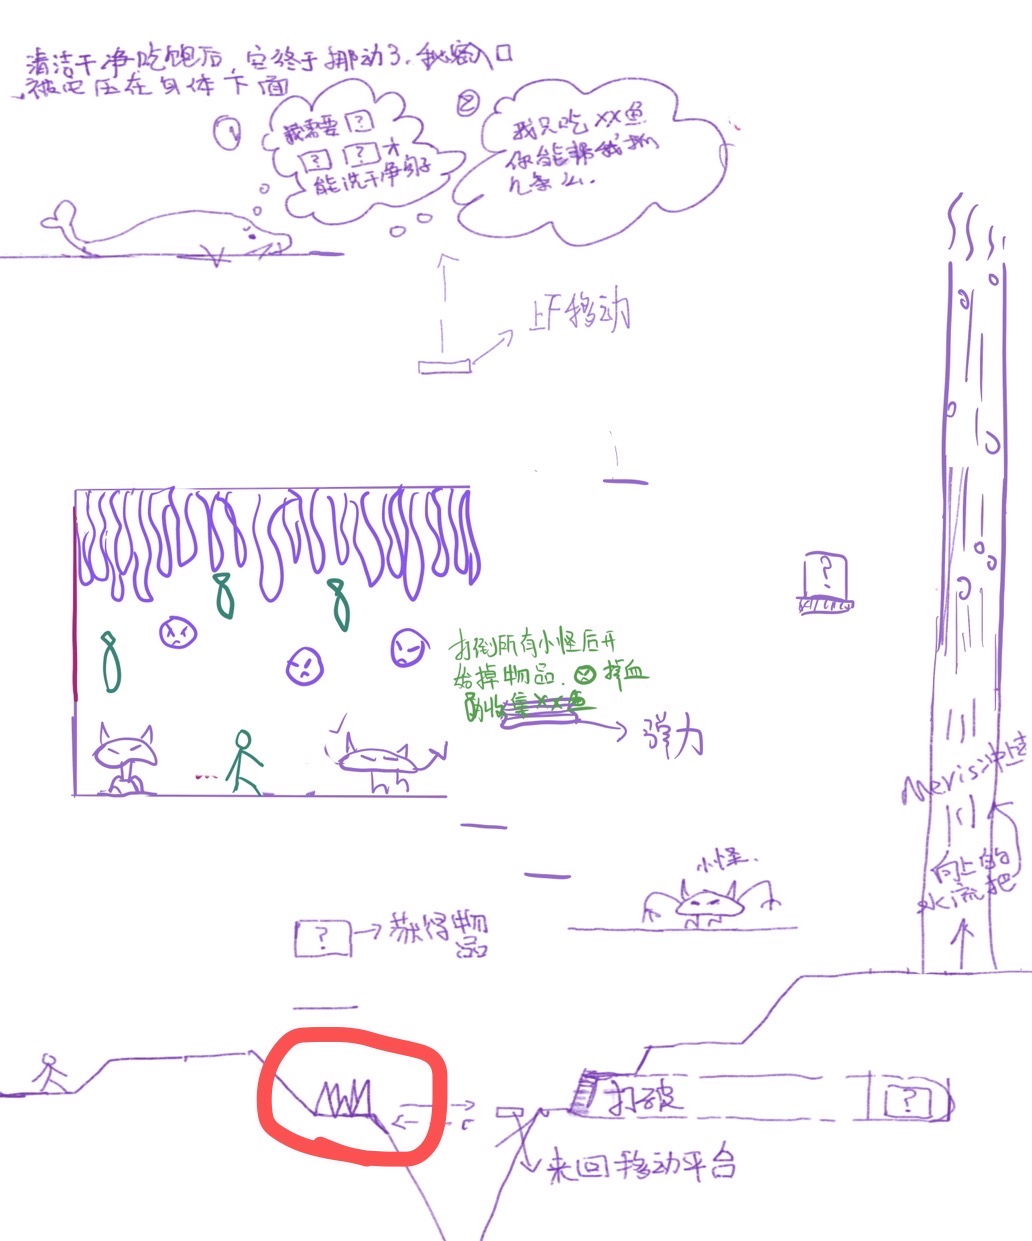 清洁干净吃饱后,它终于挪动了.秘密入口
被它压在身体下面
1
我需要 ?
? ? 才
能洗干净身子
2
我只吃XX鱼
你能帮我抓
几条么.
上下移动
?
打倒所有小怪后开
始掉物品. 掉血
收集XX鱼
弹力
Meris冲上去
向上的
水流把
小怪.
? 获得物
品
打破
?
来回移动平台